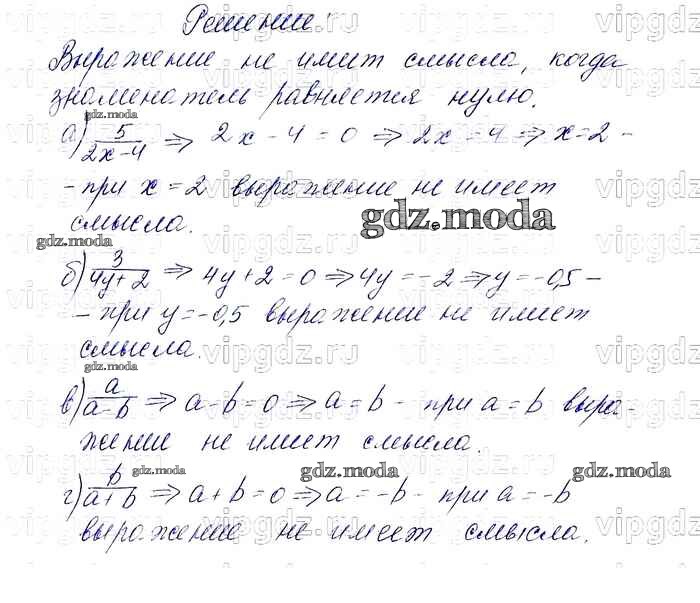 Решение:
Выражение не имеет смысла, когда
знаменатель равняется нулю.
gdz.moda
а) 5/(2x-4) => 2x-4=0 => 2x=4 => x=2 -
- при x=2 выражение не имеет
смысла.
gdz.moda
gdz.moda
б) 3/(4y+2) => 4y+2=0 => 4y=-2 => y=-0,5 -
- при y=-0,5 выражение не имеет
смысла.
gdz.moda
в) a/(a-b) => a-b=0 => a=b - при a=b выра-
жение не имеет смысла.
gdz.moda
gdz.moda
gdz.moda
г) b/(a+b) => a+b=0 => a=-b - при a=-b
выражение не имеет смысла.
vipgdz.ru